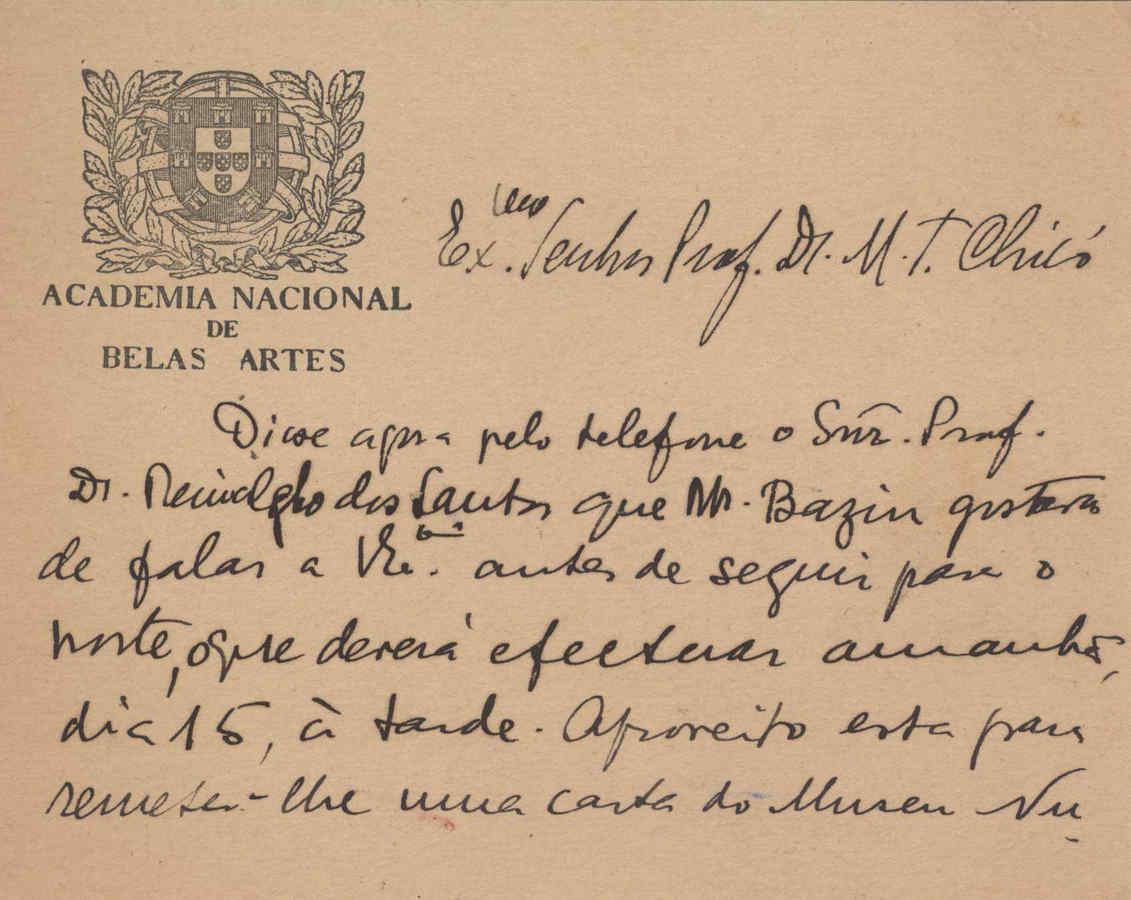 ACADEMIA NACIONAL
DE
BELAS ARTES
Ex.mo Senhor Prof. Dr. M. T. Chicó
Disse agora pelo telefone o Snr. Prof.
Dr. Reinaldo dos Santos que Mr. Bazin gostava
de falar a V. Ex.ª antes de seguir para o
norte, o que deverá efectuar amanhã,
dia 15, à tarde. Aproveito esta para
remeter-lhe uma carta do Museu Nu-